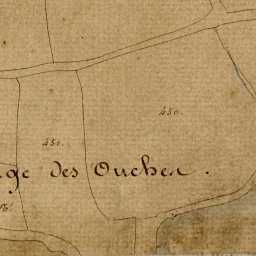 450.
450.
ge des Ouches.